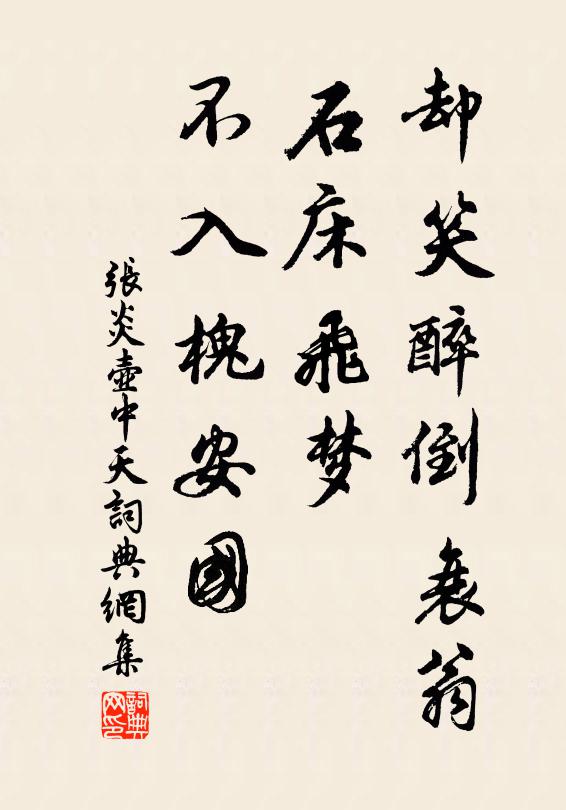 却笑醉倒衰翁
石床飛梦
不入槐安國
張炎壺中天詞典網集
詞典网印